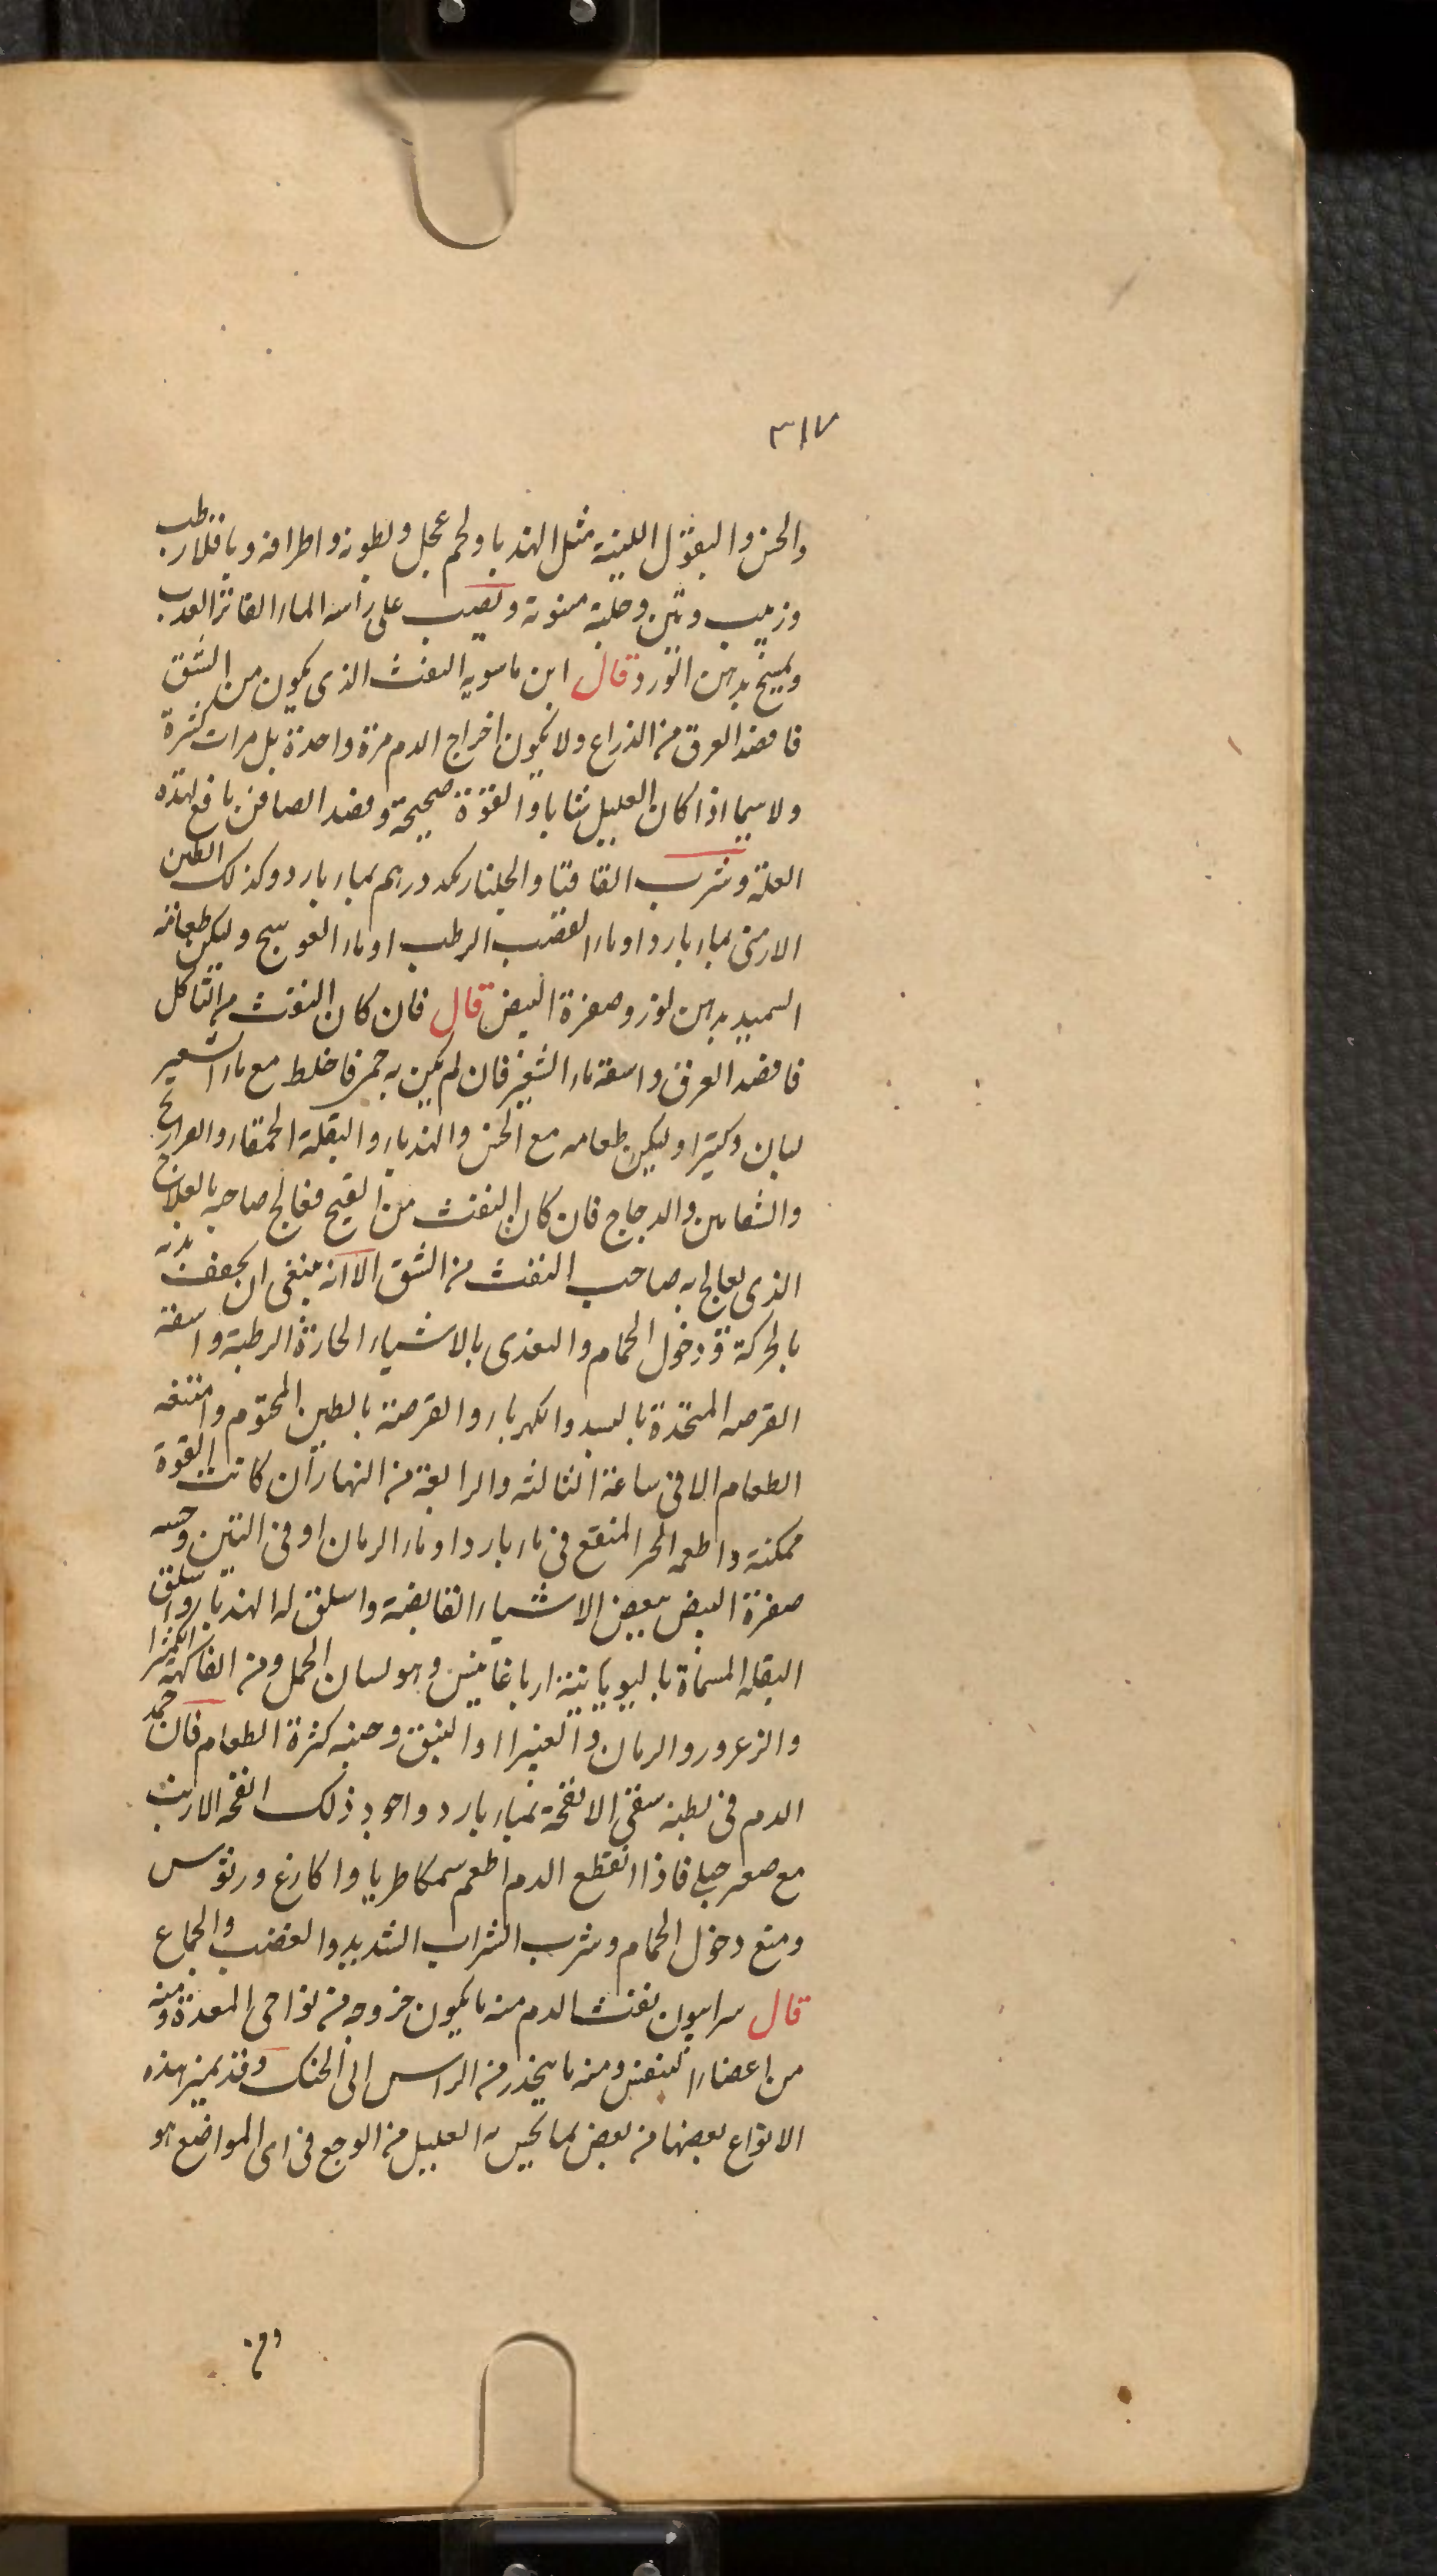 ٣١٧
والخس والبقول اللينة مثل الهندبا ولحم عجل وبطونه واطرافه وباقلا رطب
وزبيب وتين وحلبة منونة ويصب على راسه الماء الفاتر العذب
ويمسح بدهن الورد قال ابن ماسويه النفث الذى يكون من الشق
فافصد العرق من الذراع ولا يكون اخراج الدم مرة واحدة بل مرات كثيرة
ولا سيما اذا كان العليل شابا والقوة صحيحة وفصد الصافن نافع لهذه
العلة وشرب القاقيا والجلنار كد درهم بماء بارد وكذلك الطين
الارمنى بماء بارد او ماء القضب الرطب او ماء العوسج وليكن طعامه
السميد بدهن لوز وصفرة البيض قال فان كان النفث من التاكل
فافصد العرق واسقه ماء الشعير فان لم يكن به حمى فاخلط مع ماء الشعير
لبان وكثيرا وليكن طعامه مع الخس والهندباء والبقلة الحمقاء والفراريج
والشفانين والدجاج فان كان النفث من القيح فعالج صاحبه بالعلاج
الذى يعالج به صاحب النفث من الشق الا انه ينبغى ان يجفف بدنه
بالحركة ودخول الحمام والتغذى بالاشياء الحارة الرطبة واسقه
القرصه المتخذة بالبسد والكهرباء والقرصة بالطين المختوم وامنعه
الطعام الا فى ساعة الثالثه والرابعة من النهار ان كانت القوة
ممكنة واطعمه الخبز المنقع فى ماء بارد او ماء الرمان او فى التين وحسه
صفرة البيض ببعض الاشياء القابضة واسلق له الهندباء واسلق
البقله المسماة باليويانية ارباغانيس وهو لسان الحمل ومن الفاكهة الكمثرا
والزعرور والرمان والغبيراا والنبق وجنبه كثرة الطعام فان جمد
الدم فى بطنه سقى الانفحة بماء بارد واجود ذلك انفحه الارنب
مع صعتر جبلى فاذا انقطع الدم اطعم سمكا طريا واكارع ورؤس
ومنع دخول الحمام وشرب الشراب الشديد والغضب والجماع
قال سرابيون نفث الدم منه ما يكون خروجه من نواحى المعدة ومنه
من اعضاء النفس ومنه ما ينحدر من الراس الى الحنك وقد يميز هذه
الانواع بعضها من بعض بما يحس به العليل من الوجع فى اى المواضع هو